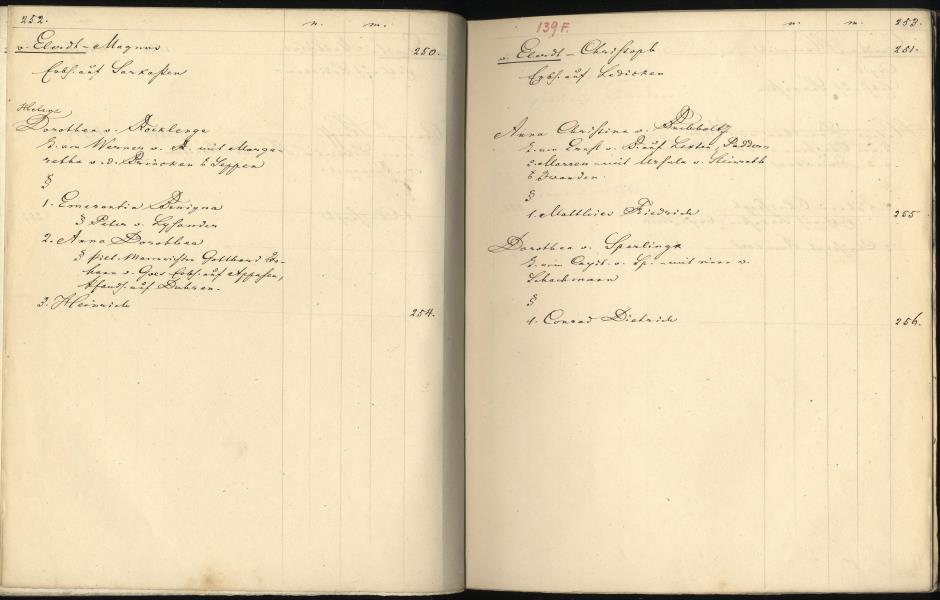 252. n. m.
v. Elerdt - Magnus 250.
Erbh. auf Sarkassen
Helene
Dorothea v. Köcklenge
T. von Werner v. K. mit Marga-
retha v. d. Brincken a Seppen
§
1. Emerentia Benigna
§ Peter v. Lysander
2. Anna Dorothea
§ Mannrichter Gotthard Jo-
hann v. Goes Erbh. auf Appassen,
Pfandh. auf Duhren.
3. Heinrich 254.
139 F. n. m. 253.
v. Elerdt - Christoph 251.
Erbh. auf Ledicken
Anna Christina v. Buchholtz
T. von Ernst v. B. auf Lexten, Puddern
u. Marren mit Ursula v. Heinroth
a
§
1. Matthies Friedrich 255
Dorothea v. Sperling
T. vom Capit. v. Sp. mit einer v.
Schachmann
§
1. Conrad Dietrich 256.